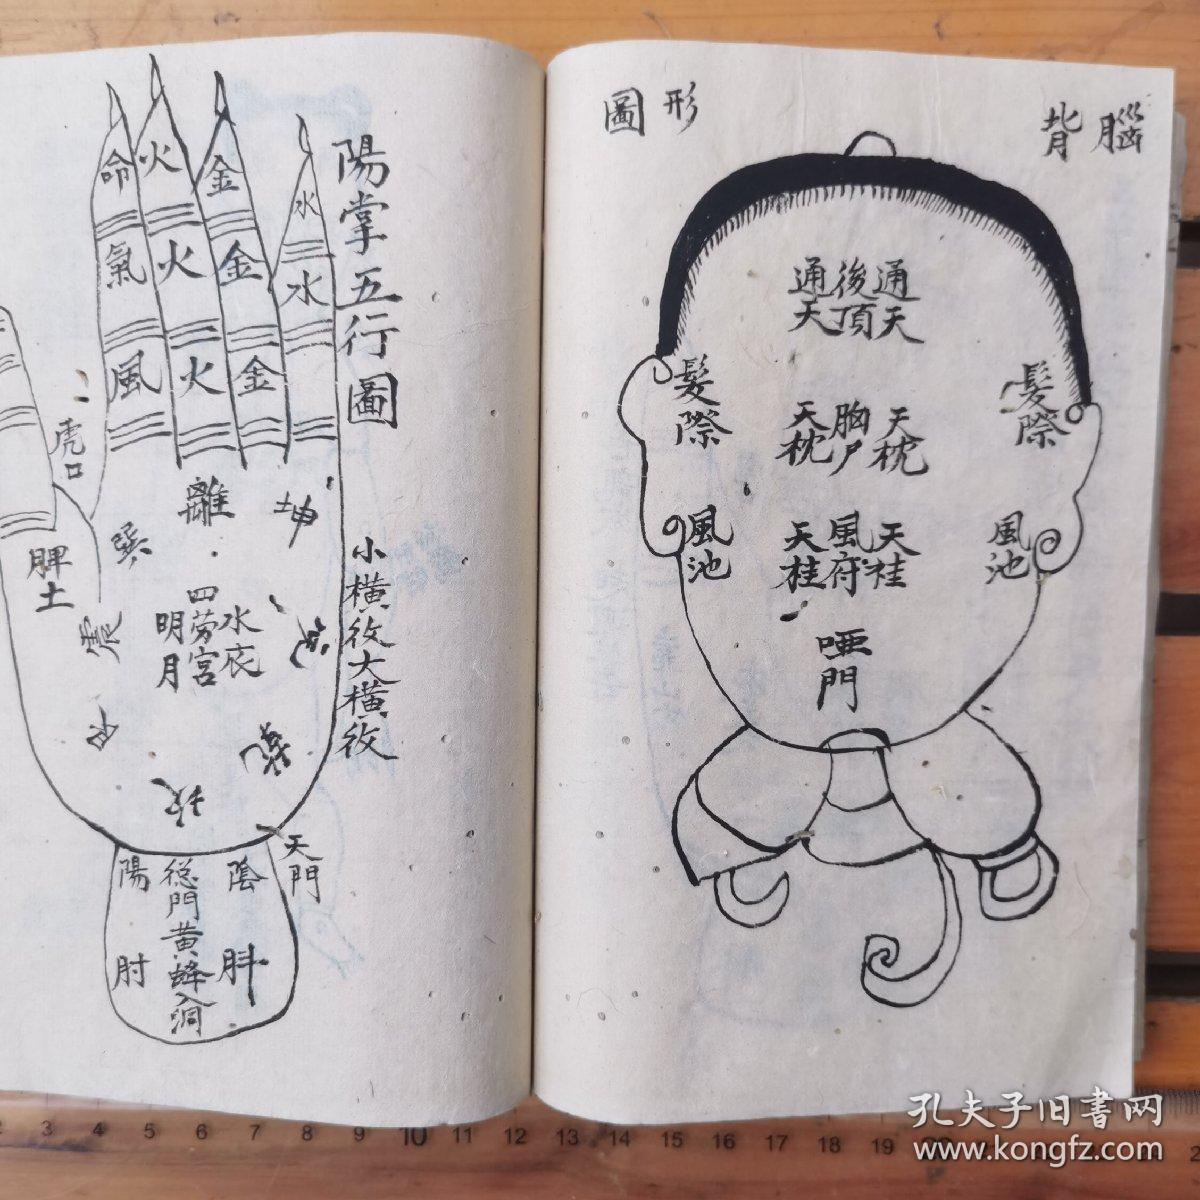 腦背
形圖
通天
後頂
通天
髮際
髮際
天枕
胸尸
天枕
風池
風池
天桂
風府
天桂
啞門
陽掌五行圖
小横紋大横紋
水
水
金
金
金
火
火
火
命
氣
風
虎口
脾土
離
坤
巽
震
坎
四劳宮
水底
明月
天門
陰
陽
肘
總門黄蜂入洞
孔夫子旧書网
www.kongfz.com
2 3 4 5 6 7 8 9 10 11 12 13 14 15 16 17 18 19 20